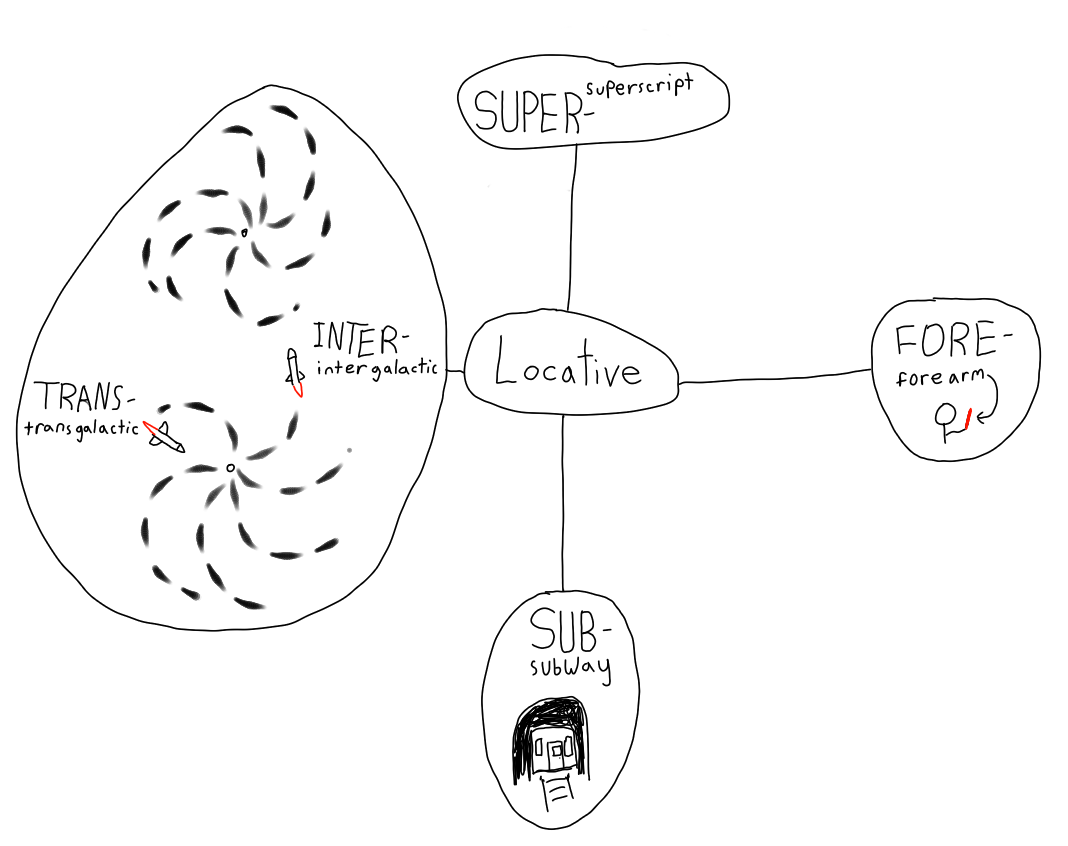 SUPER-superscript
INTER-
intergalactic
TRANS-
transgalactic
Locative
FORE-
forearm
SUB-
subway